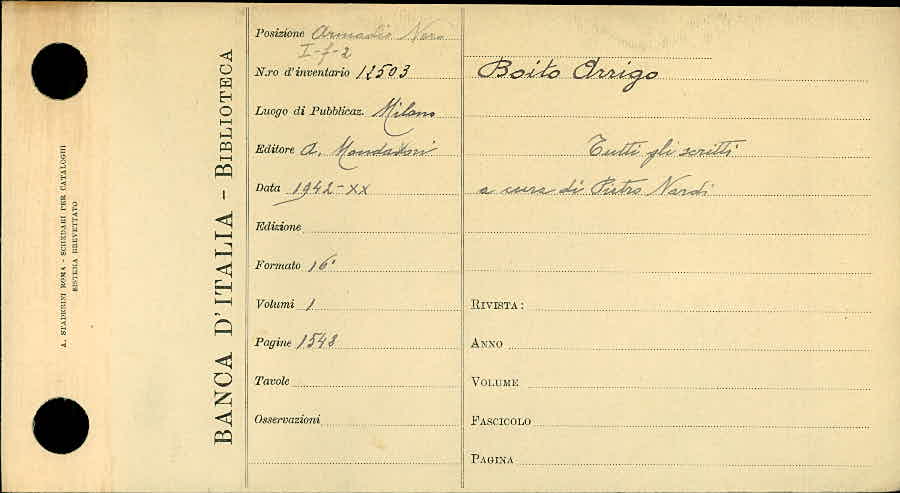 A. STADERINI ROMA - SCHEDARI PER CATALOGHI
SISTEMA BREVETTATO
BANCA D'ITALIA - BIBLIOTECA
Posizione Armadio Nero
I-f-2
N.ro d'inventario 12503
Luogo di Pubblicaz. Milano
Editore A. Mondadori
Data 1942-XX
Edizione
Formato 16°
Volumi 1
Pagine 1543
Tavole
Osservazioni
Boito Arrigo
Tutti gli scritti
a cura di Pietro Nardi
RIVISTA:
ANNO
VOLUME
FASCICOLO
PAGINA